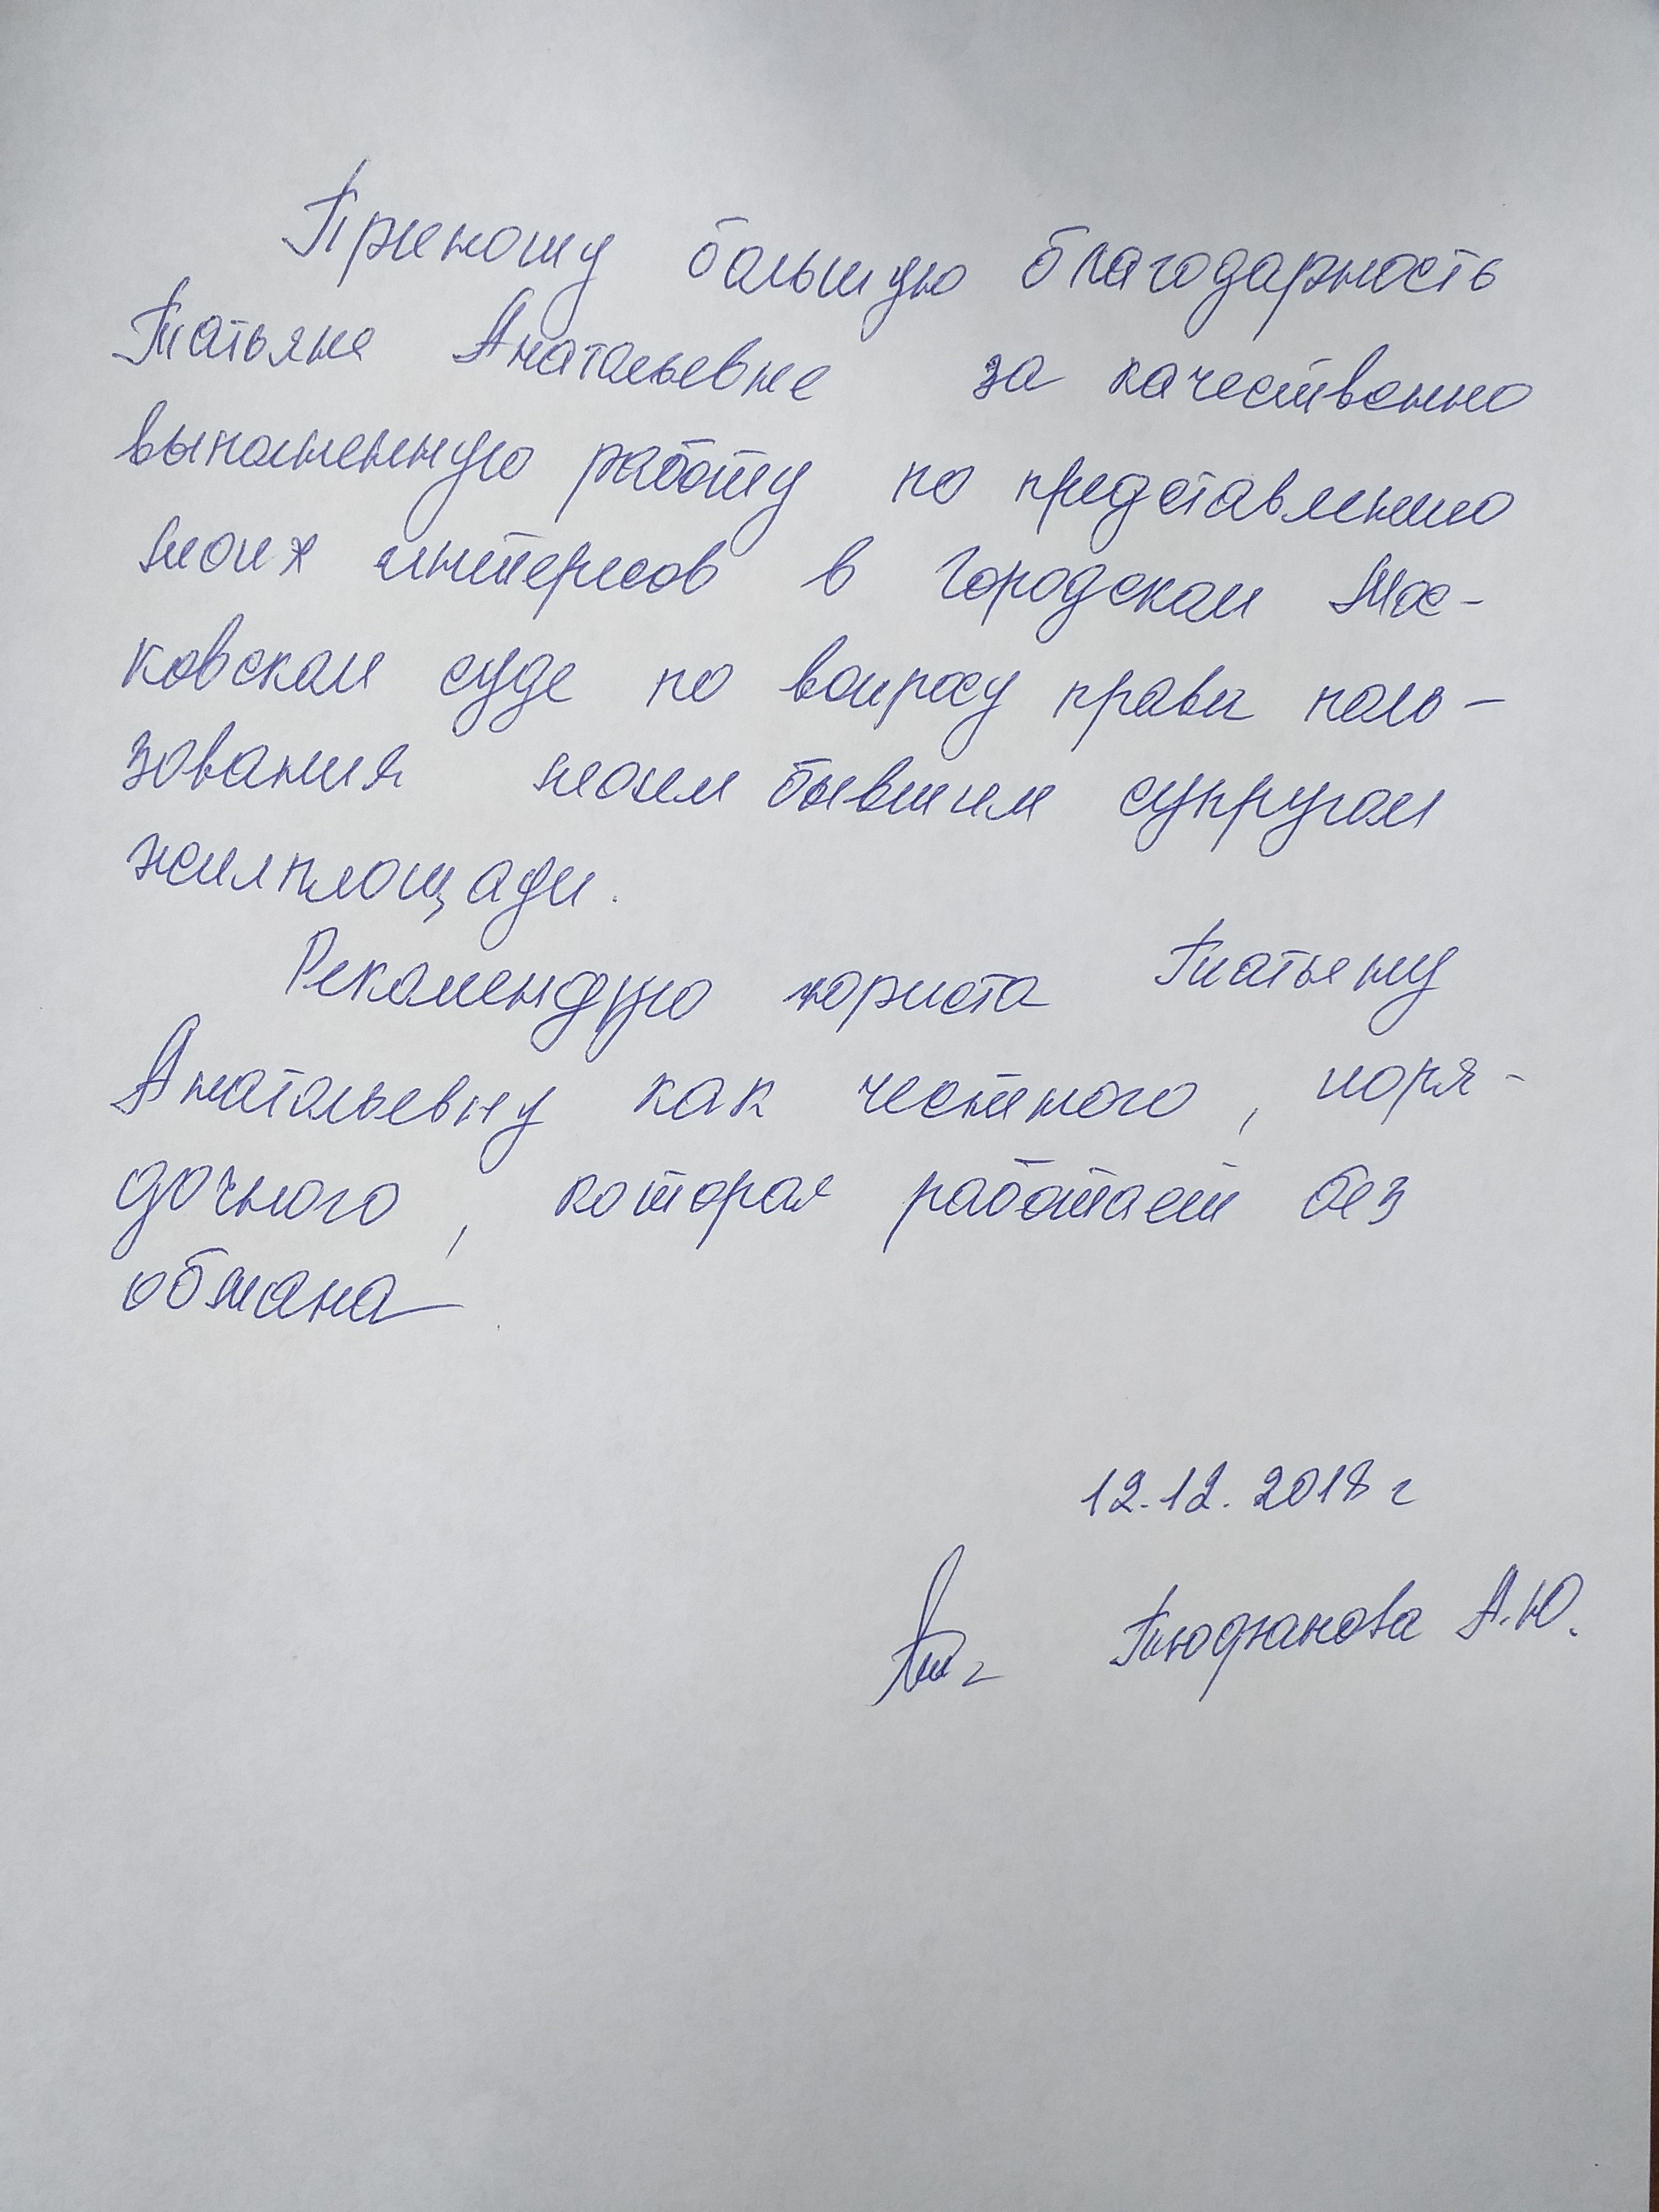 Приношу большую благодарность
Татьяне Анатольевне за качественно
выполненную работу по представлению
моих интересов в Городском Мос-
ковском суде по вопросу права поль-
зования моим бывшим супругом
жилплощади.
Рекомендую юриста Татьяну
Анатольевну как честного, поря-
дочного, которая работает без
обмана
12.12.2018 г
А.Ю.